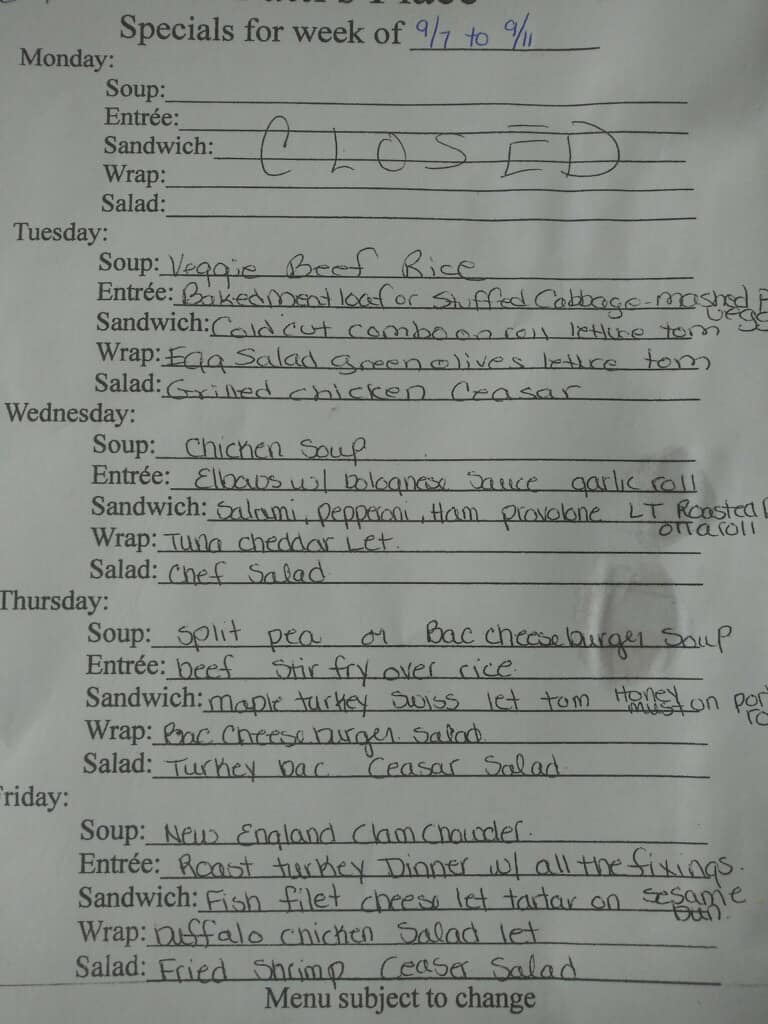 Specials for week of 9/7 to 9/11
Monday:
Soup:
Entrée:
CLOSED
Sandwich:
Wrap:
Salad:
Tuesday:
Soup: Veggie Beef Rice
Entrée: Baked meat loaf or Stuffed Cabbage - mashed
Sandwich: Cold cut combo on roll lettuce tom
Wrap: Egg Salad green olives lettuce tom
Salad: Grilled chicken Ceasar
Wednesday:
Soup: Chicken Soup
Entrée: Elbows w/ bolognese sauce garlic roll
Sandwich: Salami, pepperoni, Ham provolone LT Roasted
on a roll
Wrap: Tuna cheddar Let.
Salad: Chef Salad
Thursday:
Soup: Split pea or Bac cheeseburger Soup
Entrée: beef Stir fry over rice.
Sandwich: maple turkey Swiss let tom Honey
must on
Wrap: Bac Cheeseburger Salad
Salad: Turkey bac Ceasar Salad
riday:
Soup: New England Clam Chowder.
Entrée: Roast turkey Dinner w/ all the fixings.
Sandwich: Fish filet cheese let tartar on sesame
bun.
Wrap: buffalo chicken Salad let
Salad: Fried Shrimp Ceaser Salad
Menu subject to change